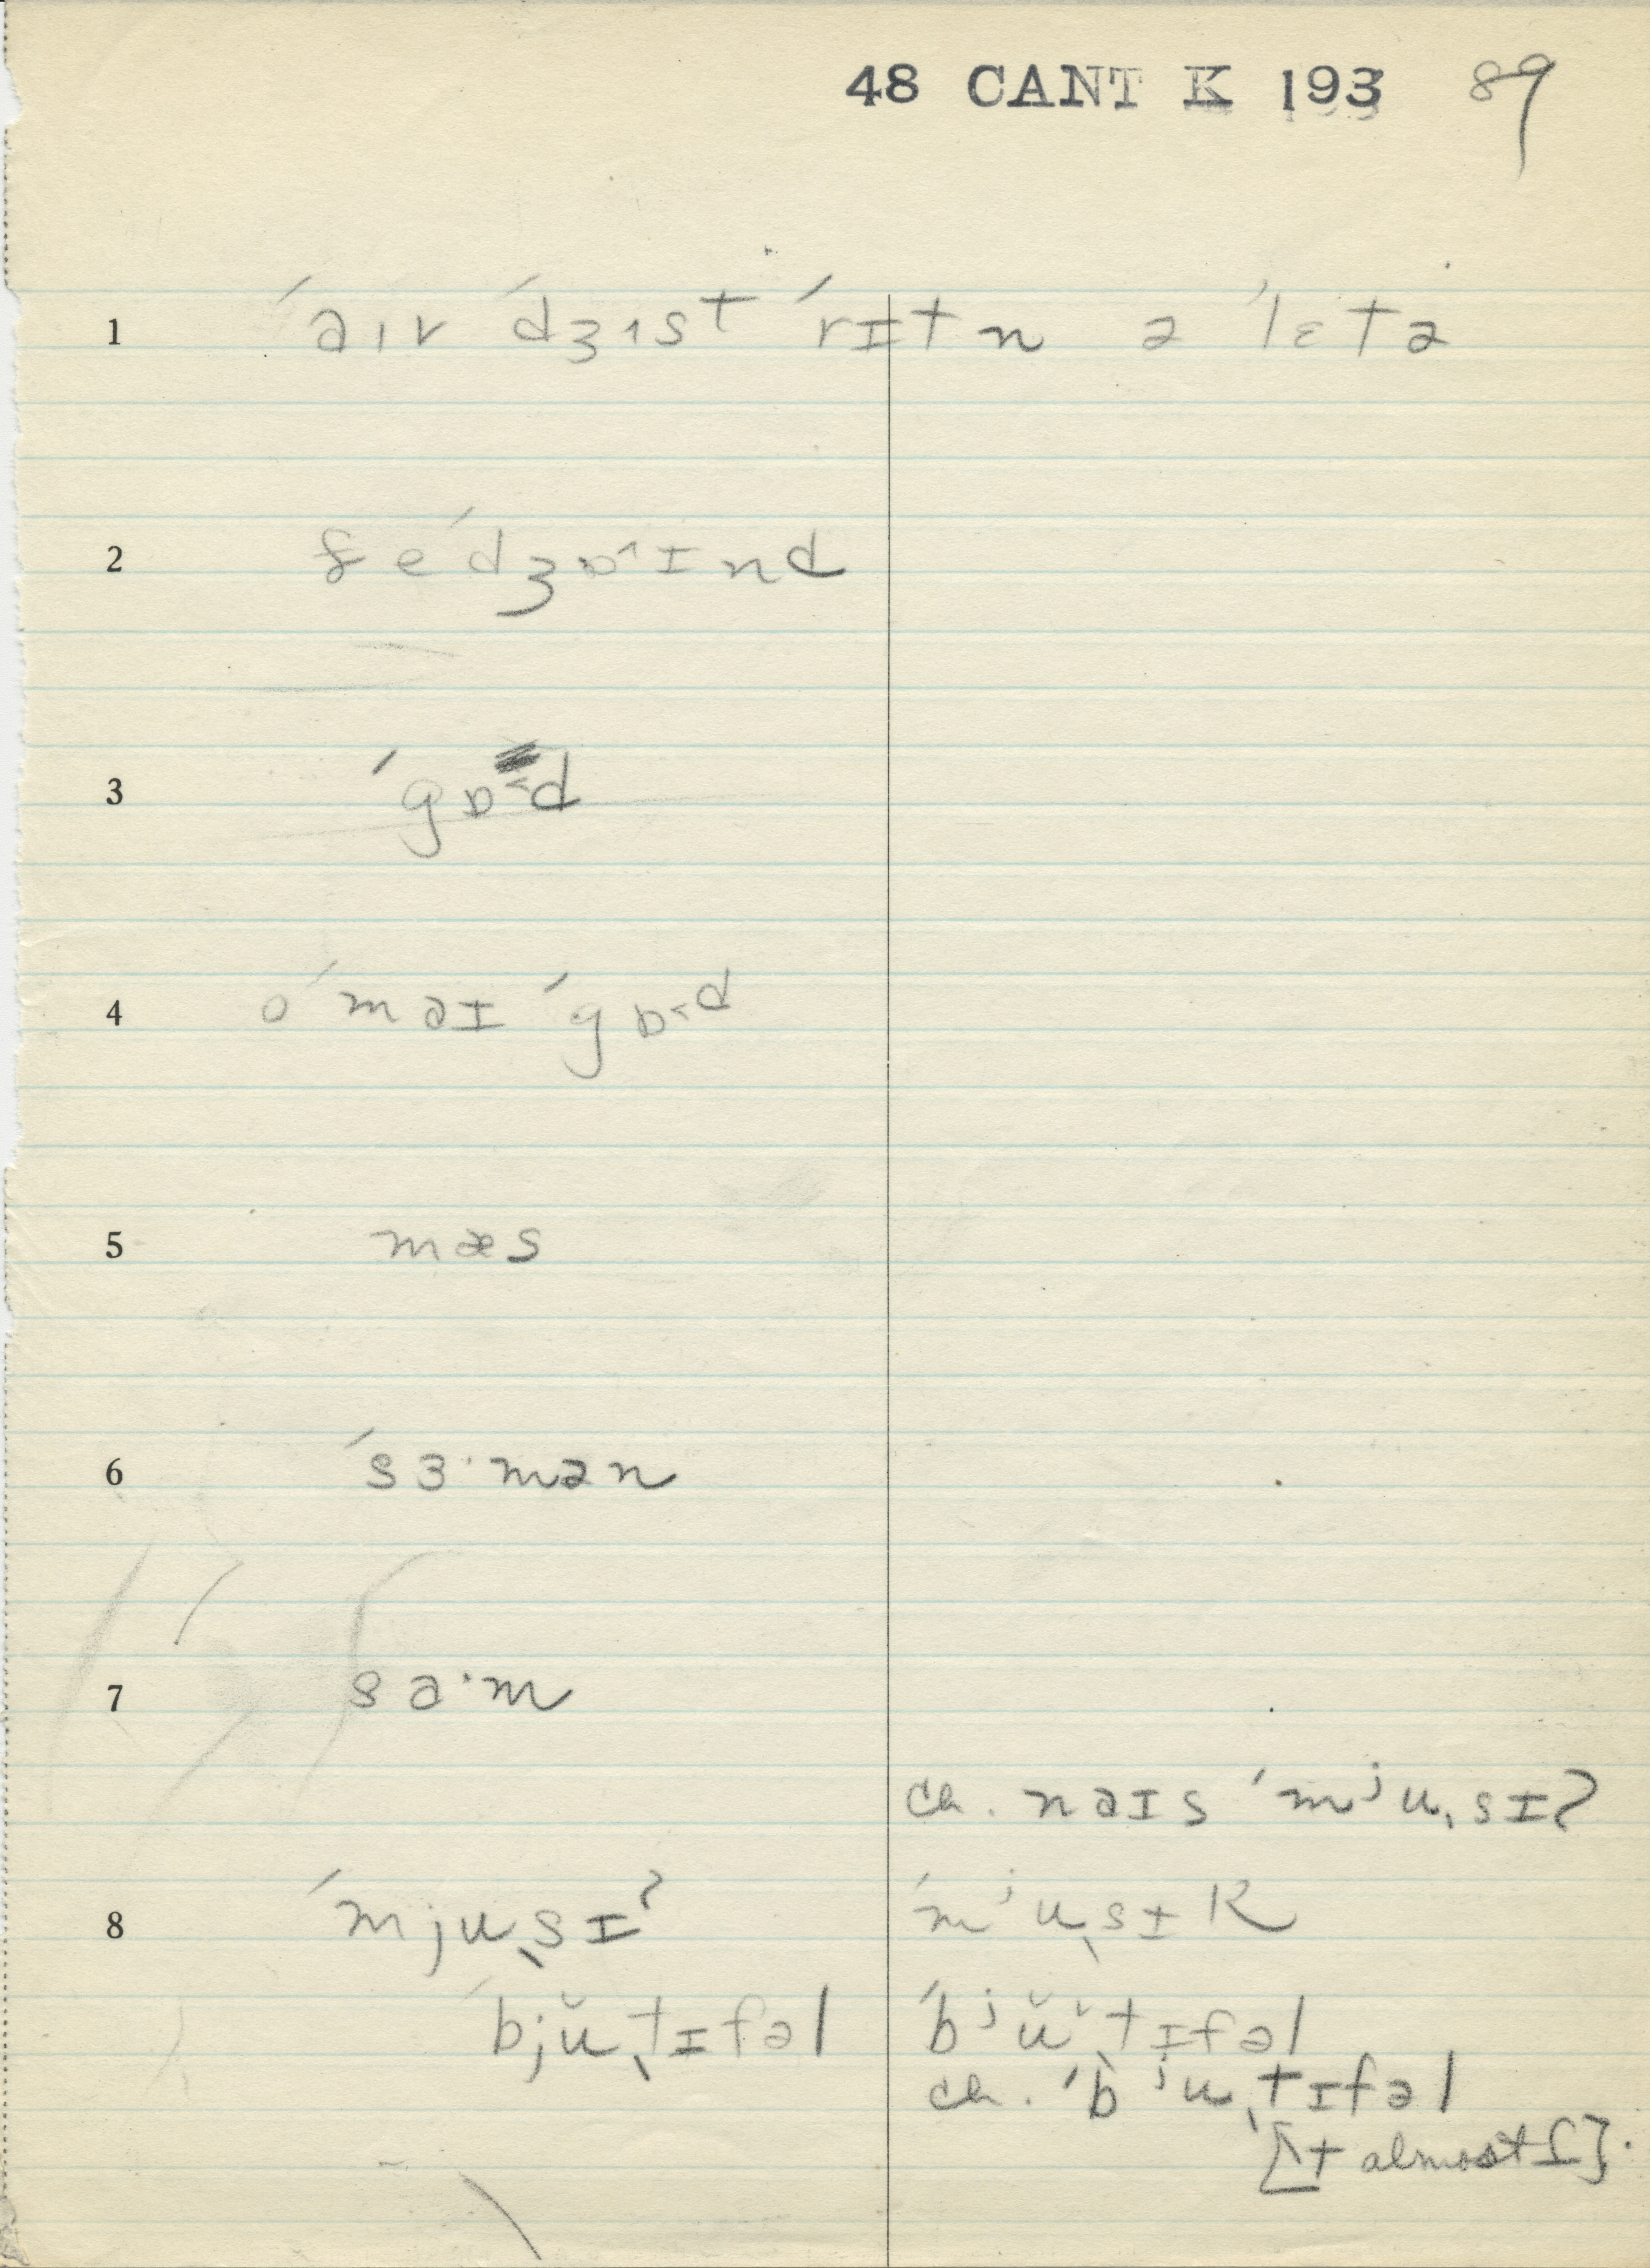 48 CANT K 193 89
1 ́aɪv ́dʒ˦st ́rɪtn ə ˈlɛtə
2 ʃe ́dʒɒ˄ɪnd
3 ́gɒ˂d
4 o ́məɪ ́gɒ˂d
5 mæs
6 ́sɜ·mən
7 sɑ·m
ch. nəɪs ́mʲuˎsɪʔ
8 ́mjuˎsɪʔ ́mʲuˎsɪk
́bjŭˎtɪfəl ́bʲŭˎtɪfəl
ch. ́bʲuˎtɪfəl
[t almost ɾ].